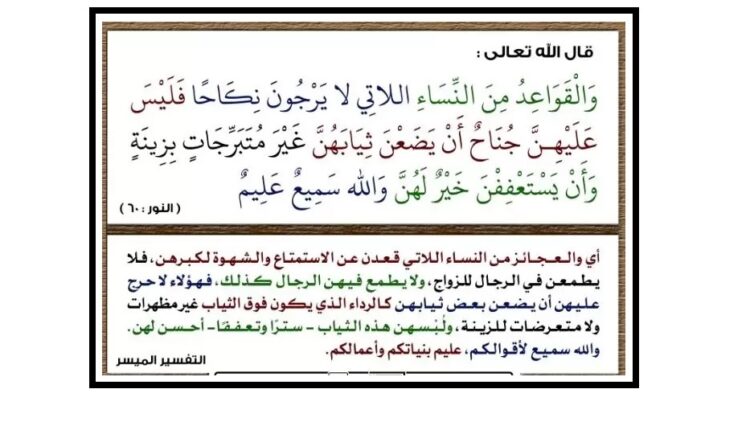 قال الله تعالى :
وَالْقَوَاعِدُ مِنَ النِّسَاءِ اللاتِي لا يَرْجُونَ نِكَاحًا فَلَيْسَ
عَلَيْهِنَّ جُنَاحٌ أَنْ يَضَعْنَ ثِيَابَهُنَّ غَيْرَ مُتَبَرِّجَاتٍ بِزِينَةٍ
وَأَنْ يَسْتَعْفِفْنَ خَيْرٌ لَهُنَّ وَالله سَمِيعٌ عَلِيمٌ
( النور : ٦٠ )
أي والعجائز من النساء اللاتي قعدن عن الاستمتاع والشهوة لكبرهن، فلا
يطمعن في الرجال للزواج، ولا يطمع فيهن الرجال كذلك، فهؤلاء لا حرج
عليهن أن يضعن بعض ثيابهن كالرداء الذي يكون فوق الثياب غير مظهرات
ولا متعرضات للزينة، ولُبْسهن هذه الثياب - سترًا وتعففًا- أحسن لهن.
والله سميع لأقوالكم، عليم بنياتكم وأعمالكم.
التفسير الميسر